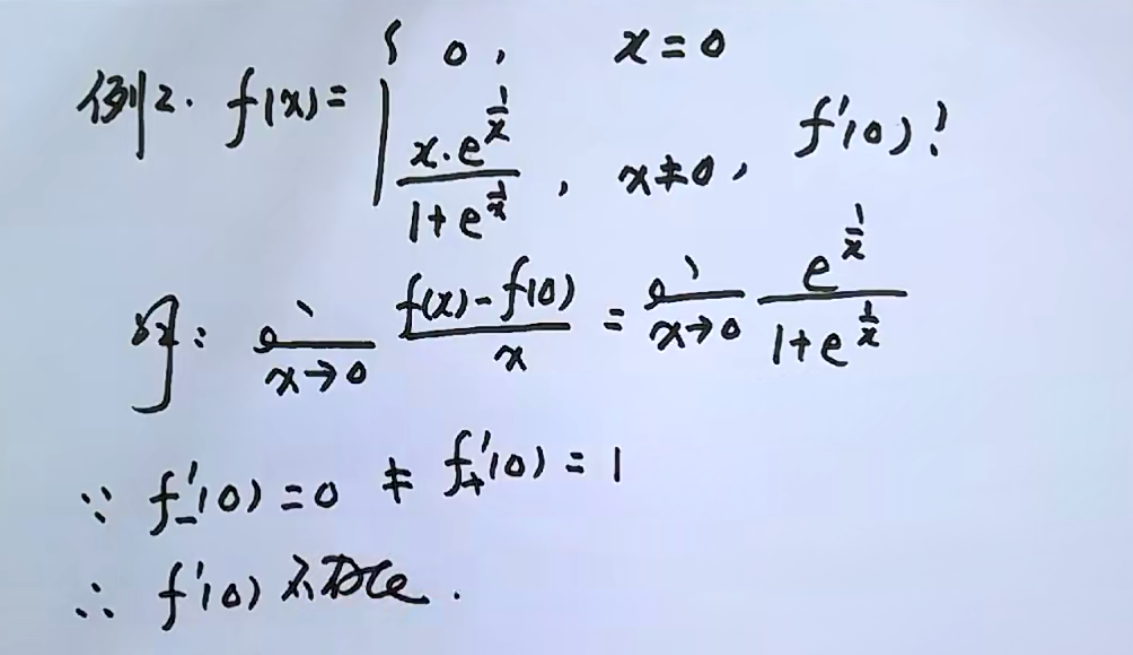 例2. f(x)= { 0, x=0
x·e^{1/x} / (1+e^{1/x}), x≠0, f'(0)?
解: lim_{x→0} (f(x)-f(0))/x = lim_{x→0} e^{1/x}/(1+e^{1/x})
∵ f'₋(0)=0 ≠ f'₊(0)=1
∴ f'(0)不存在.